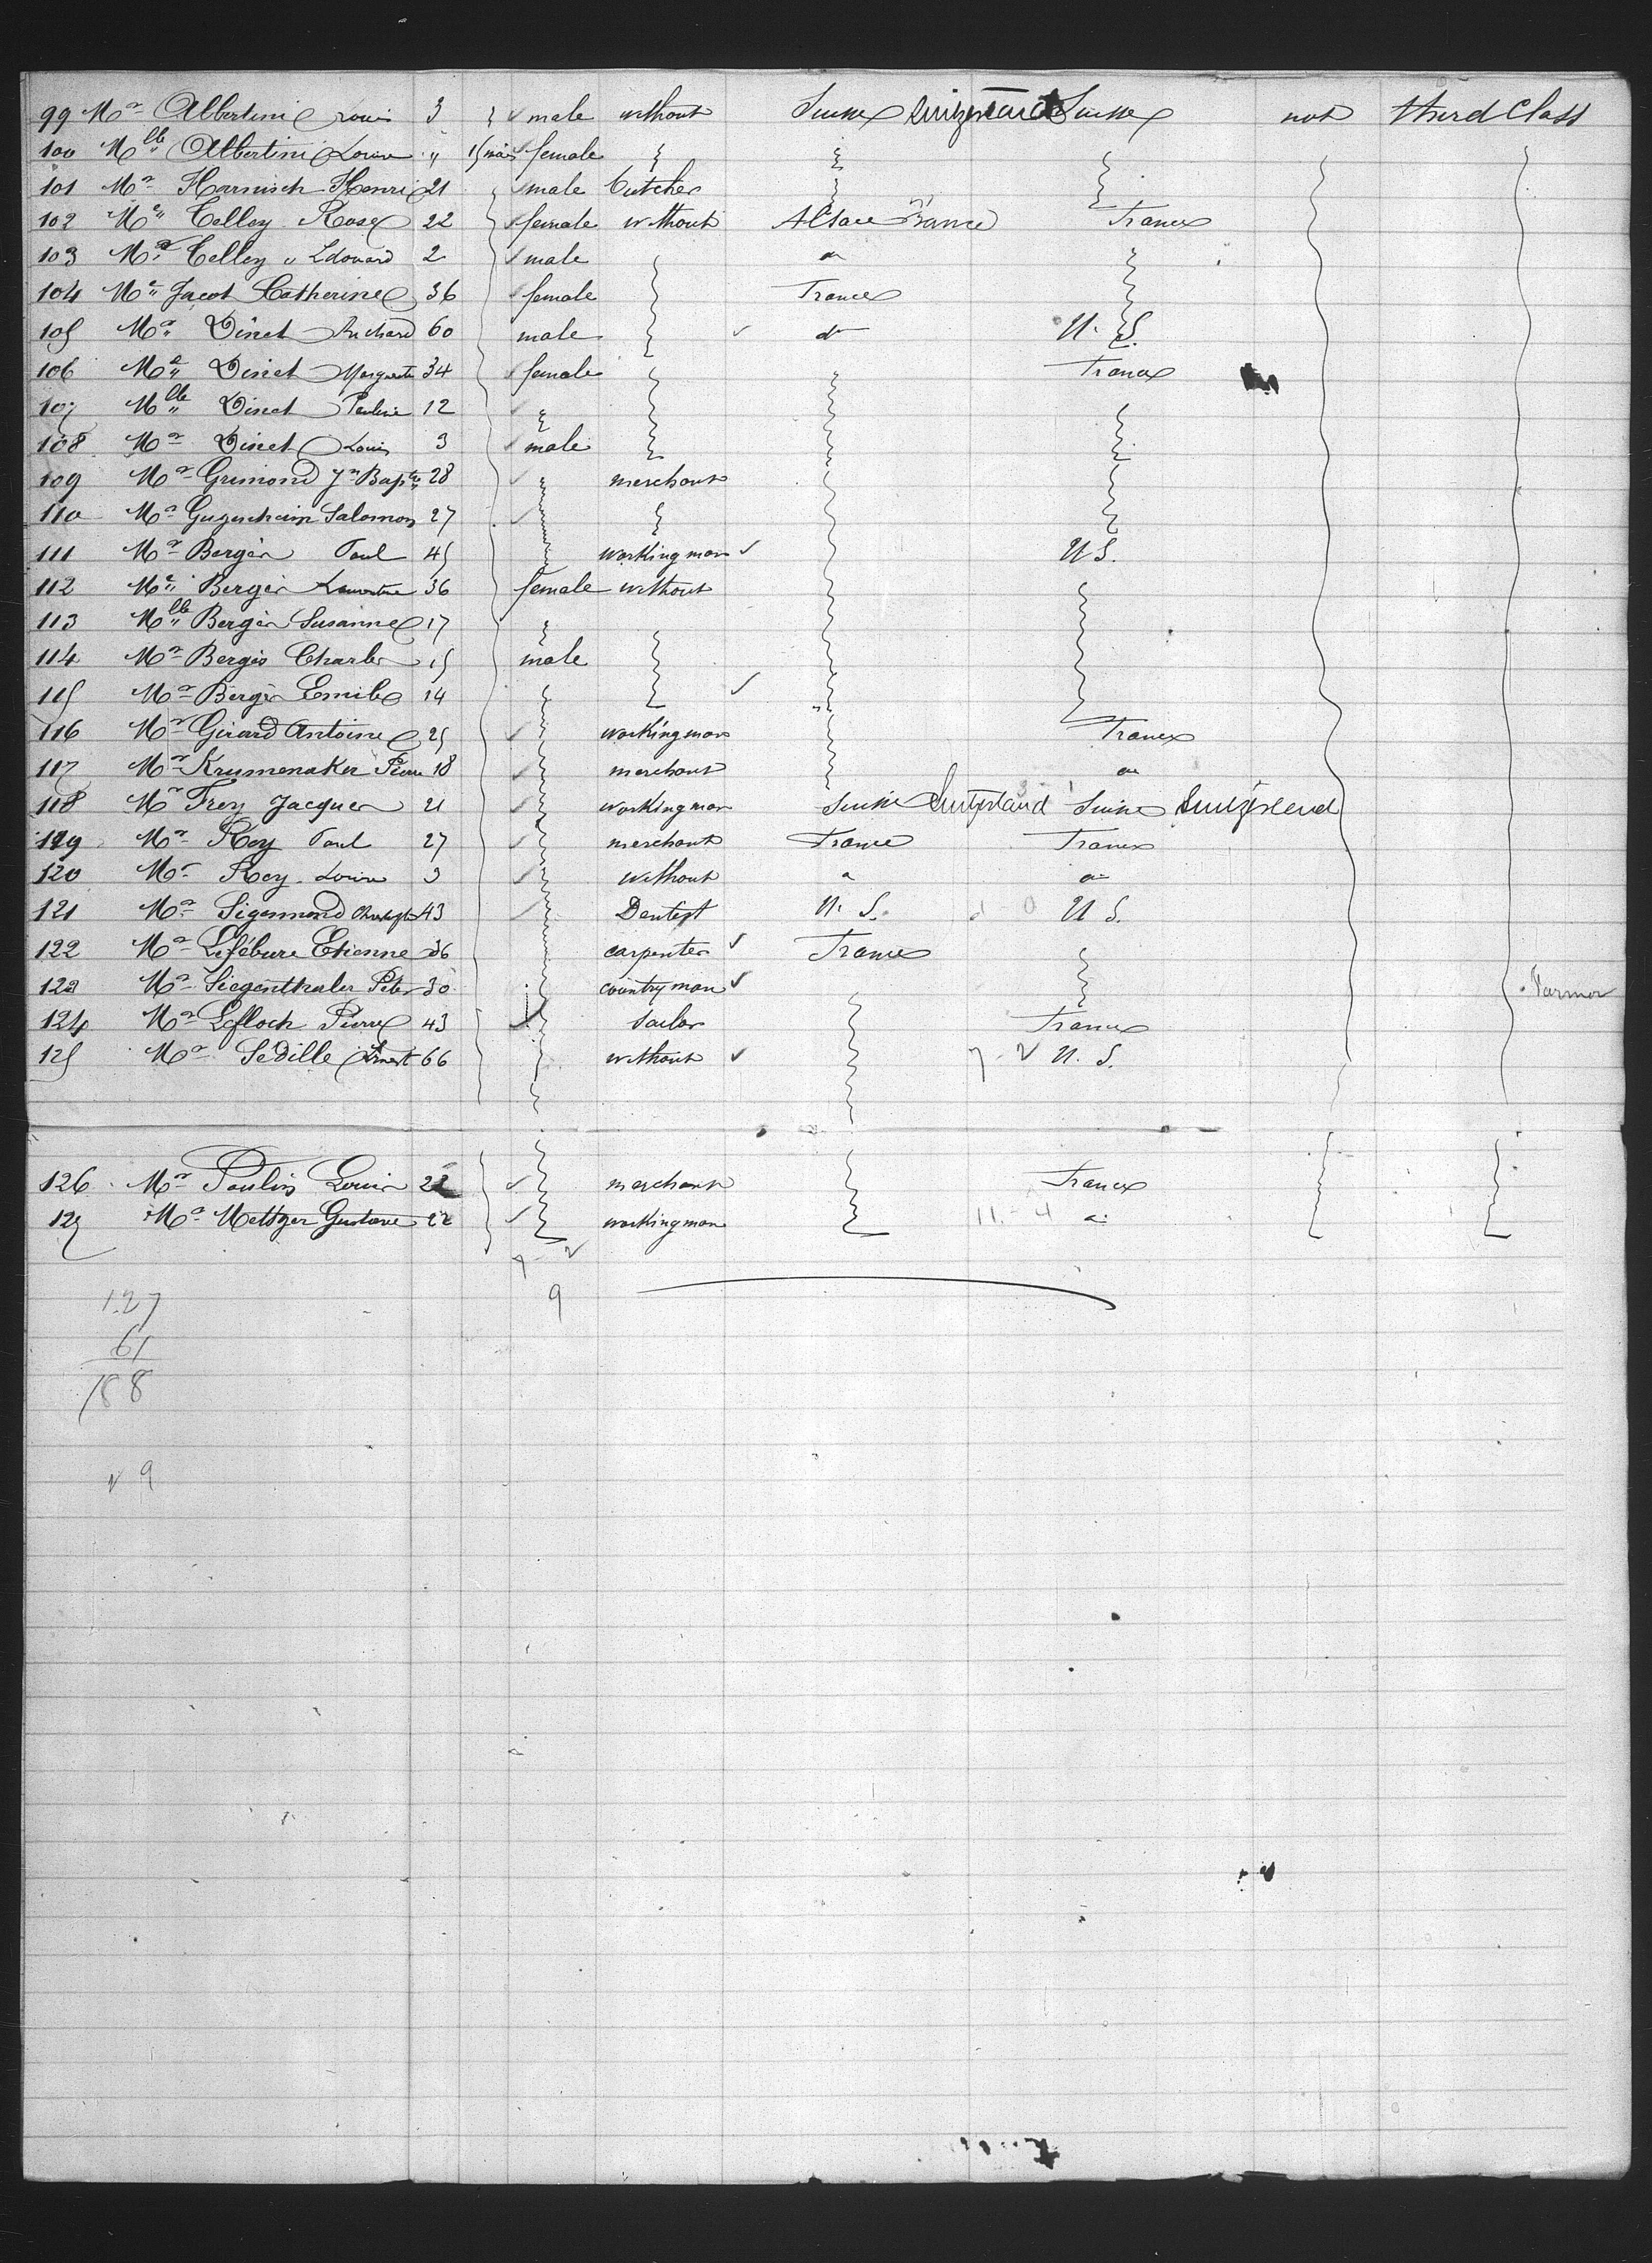 99 Mr Albertini Louis 3 male without Suisse Switzerland Suisse not third Class
100 Mlle Albertini Louise " 15 mois female
101 Mr Harnisch Henri 21 male butcher
102 Me Telley Rose 22 female without Alsace France France
103 Mr Telley " Edouard 2 male "
104 Me Jacot Catherine 36 female France
105 Mr Dinet Richard 60 male do U. S.
106 Me Dinet Marguerite 34 female France
107 Mlle Dinet Pauline 12
108 Mr Dinet Louis 3 male
109 Mr Grimond Jn Bapte 28 merchant
110 Mr Gugenheim Salomon 27
111 Mr Berger Paul 45 workingman U S.
112 Me Berger 36 female without
113 Mlle Berger Susanne 17
114 Mr Berger Charles 15 male
115 Mr Berger Emile 14
116 Mr Girard Antoine 25 workingman France
117 Mr Krumenaker Pierre 18 merchant "
118 Mr Frey Jacques 21 workingman Suisse Switzerland Suisse Switzerland
119 Mr Roy Paul 27 merchant France France
120 Mr Roy Louis 3 without " "
121 Mr Sigismond Christophe 43 Dentist U. S. U S.
122 Mr Lefébure Etienne 36 carpenter France
123 Mr Siegenthaler Peter 30 countryman Farmer
124 Mr Lefloch Pierre 43 sailor France
125 Mr Sédille Ernest 66 without 7 - 2 U. S.
126 Mr Paulin Louis 22 merchant France
127 Mr Mettzger Gustave 22 workingman 11 - 4 "
9
127
61
188
9